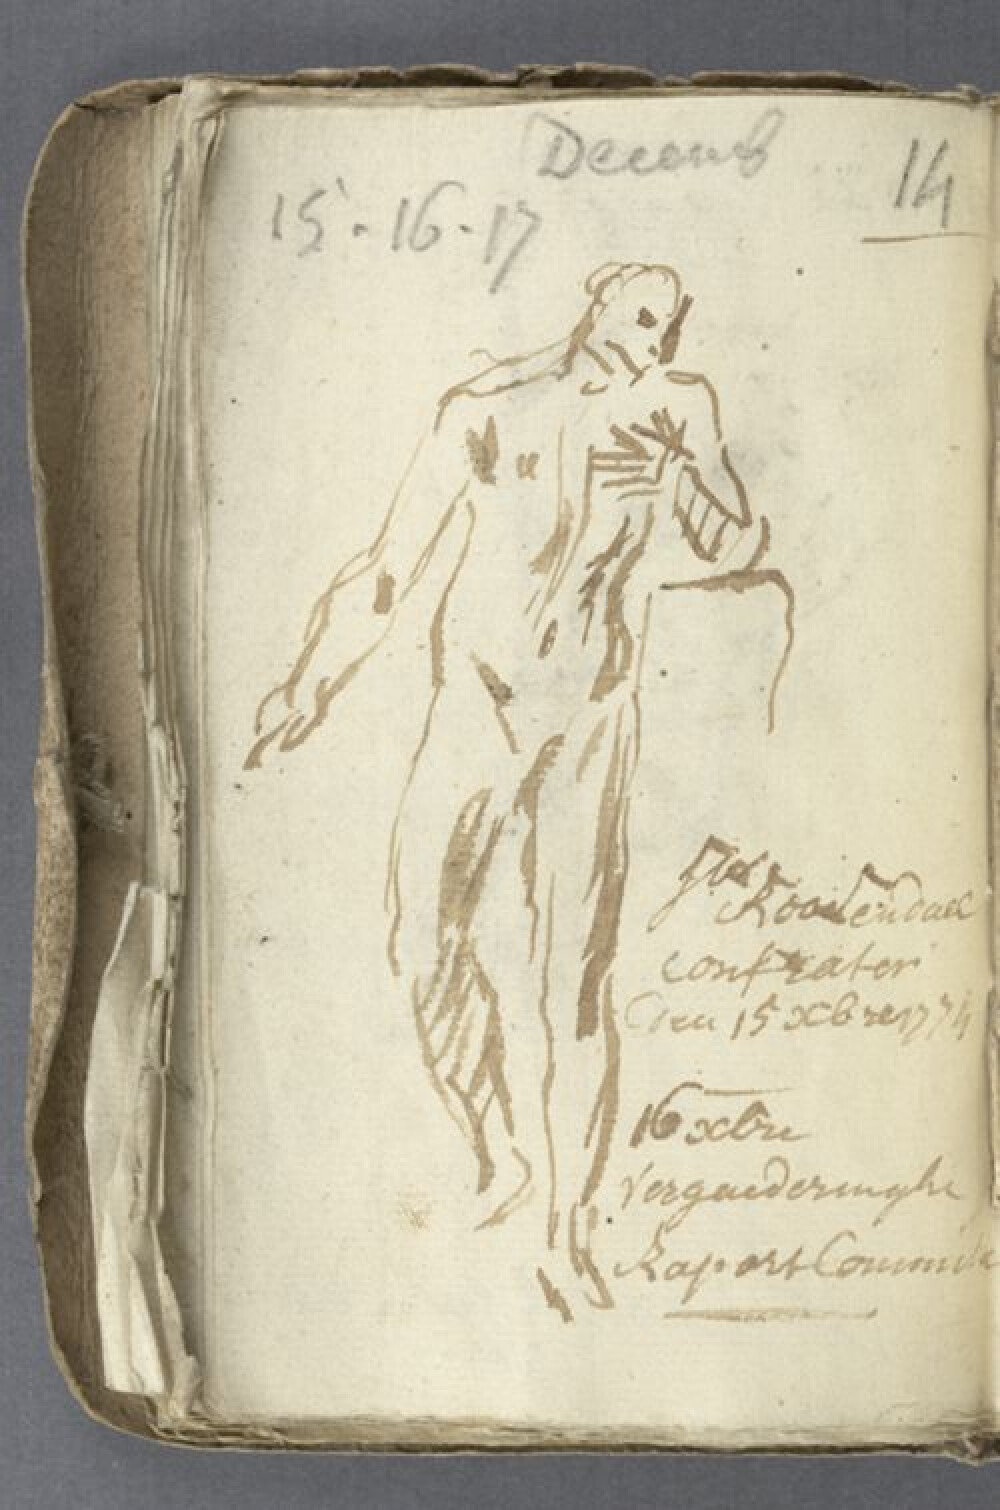 Decemb
14
15 · 16 · 17
Roosendael
confrater
Den 15 xbre 1774
16 xbre
Vergaederinghe
Raport Committe